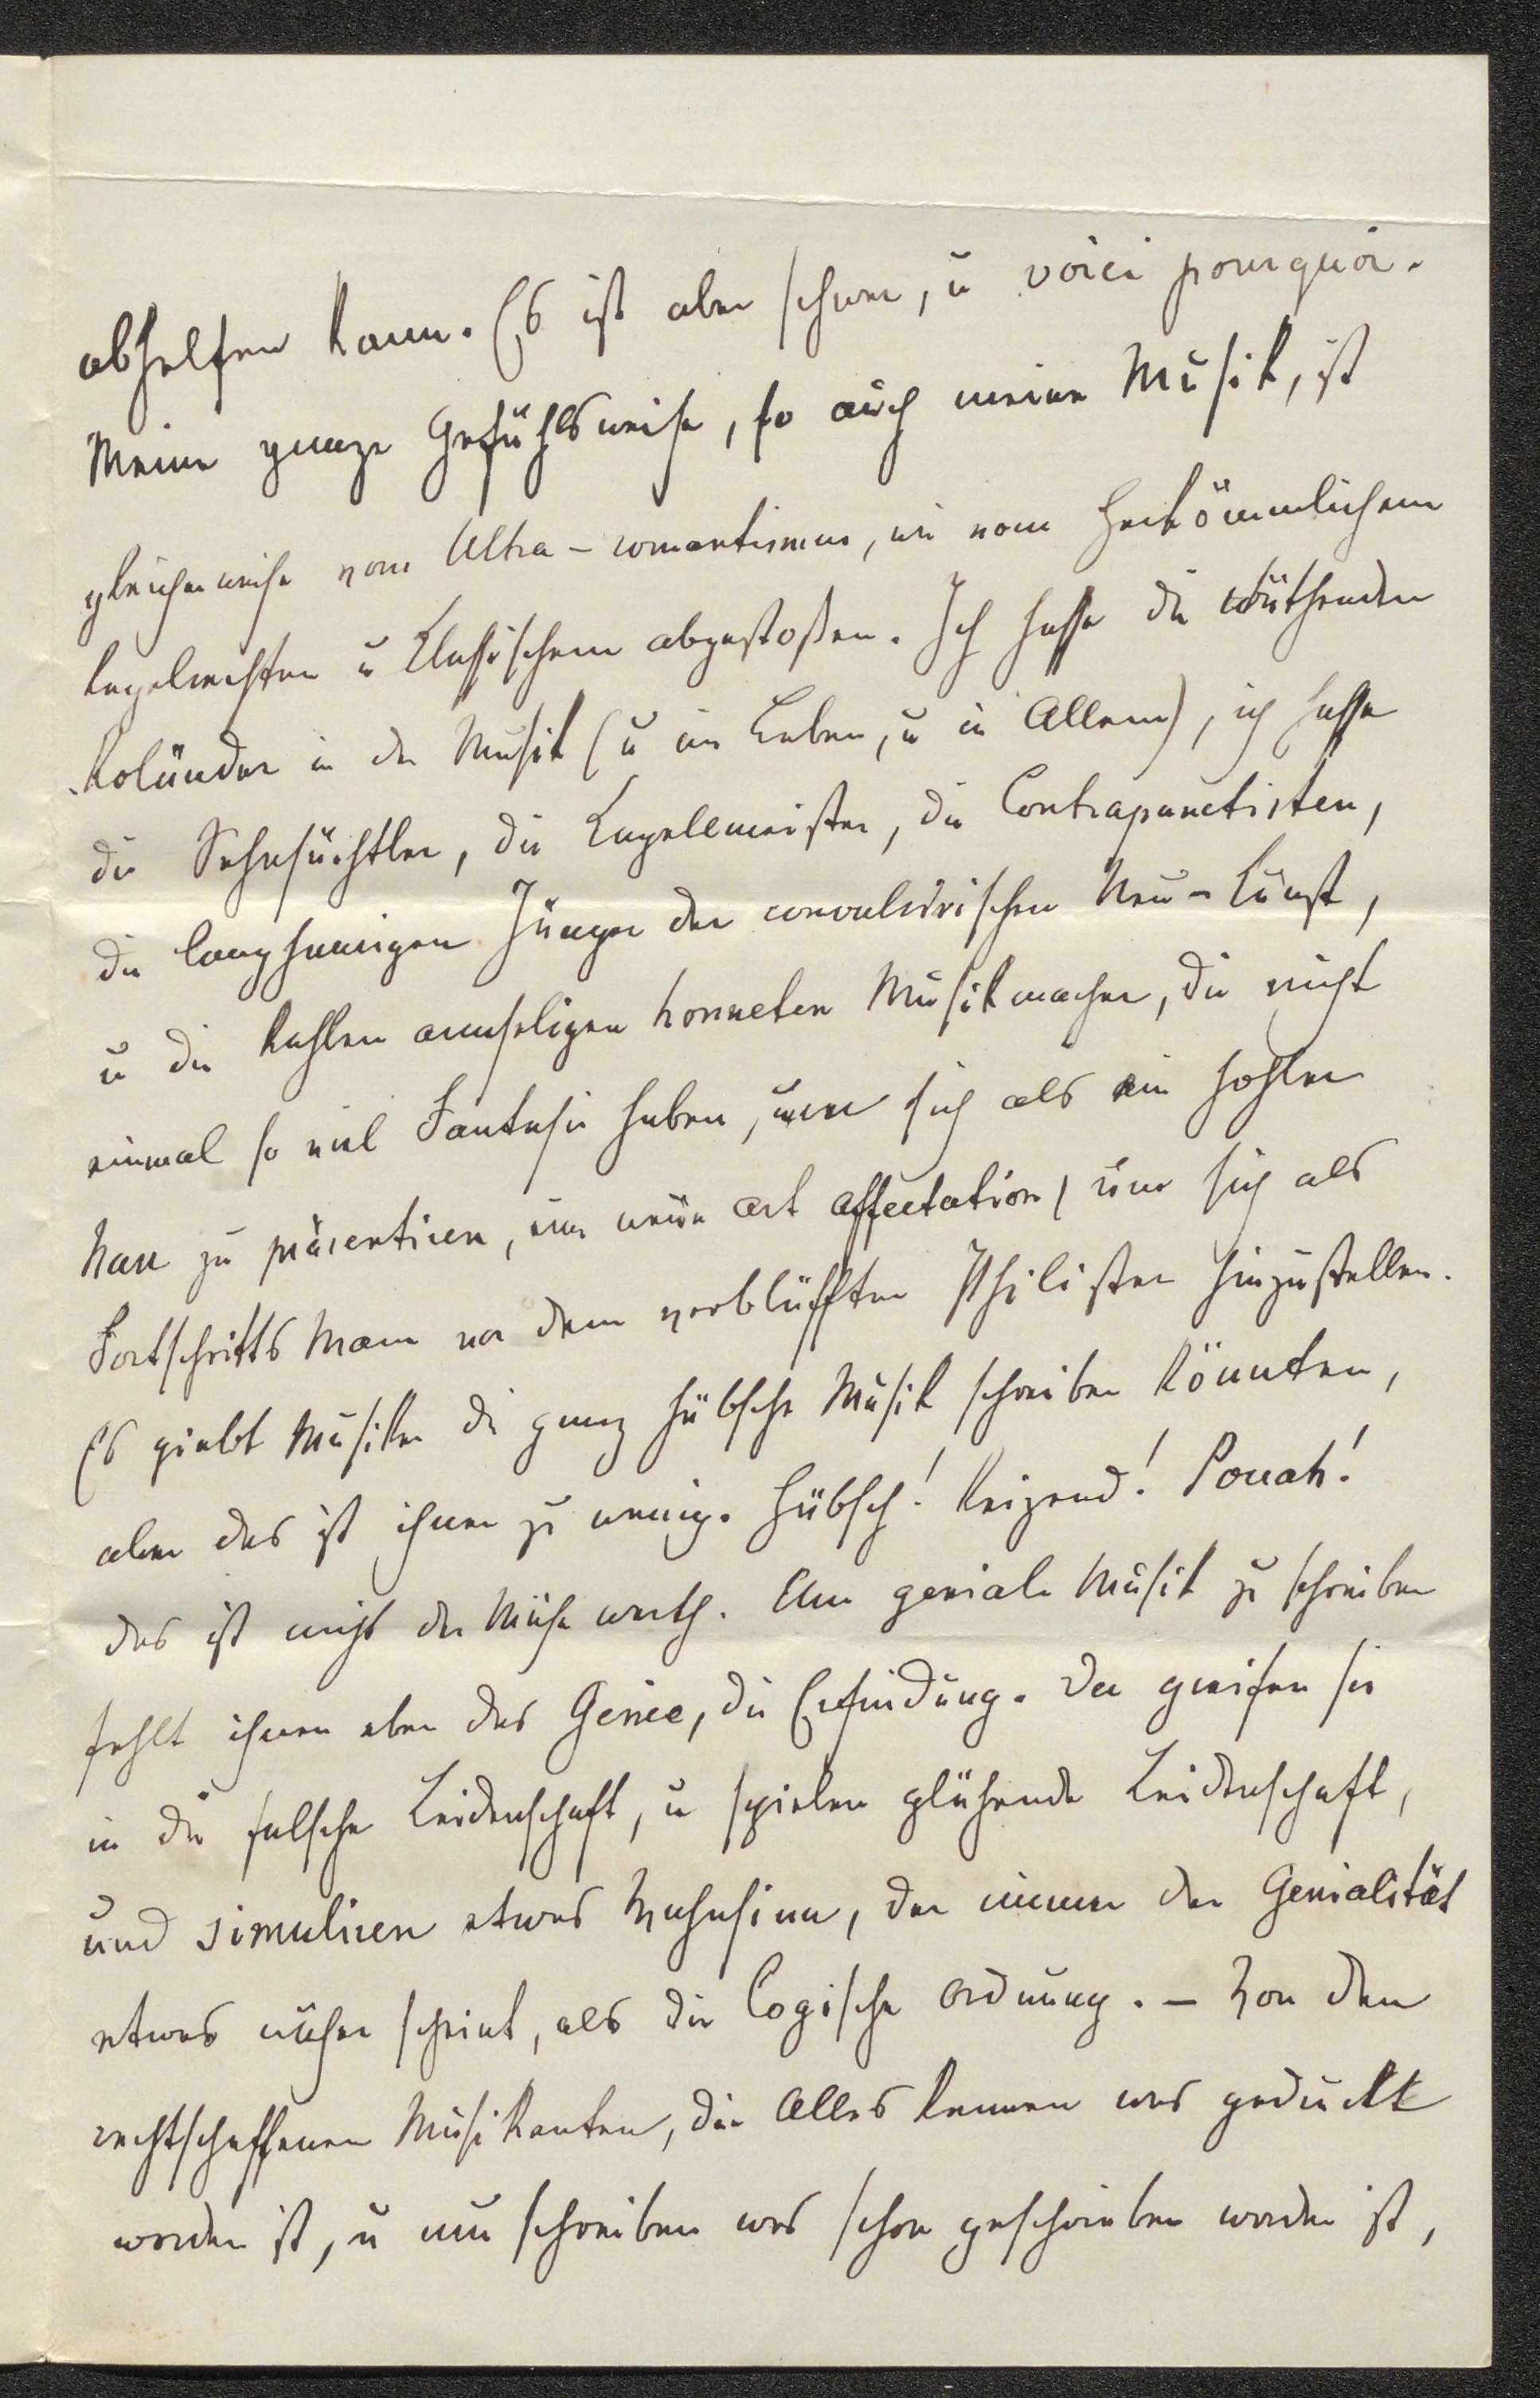 abhelfen kann. Es ist aber schwer, u voici pourquoi.
Meine ganze Gefühlsweise, so auch meine Musik, ist
gleicherweise vom Ultra-romantismus, wie vom Herkömmlichem
Regelrechten u Klassischem abgestoßen. Ich hasse die wüthenden
Rolände in der Musik (u im Leben, u in Allem), ich hasse
die Sehnsüchtler, die Kapellmeister, die Contrapunctisten,
die langhaarigen Jünger der convulsivischen Neu-Kunst,
u die kahlen armseligen honneten Musikmacher, die nicht
einmal so viel Fantasie haben, um sich als ein hohler
Narr zu präsentiren, eine neue Art Affectation, um sich als
Fortschritts Mann vor dem verblüfften Philister hinzustellen.
Es giebt Musiker die ganz hübsche Musik schreiben könnten,
aber das ist ihnen zu wenig. Hübsch! Reizend! Pouah!
das ist nicht der Mühe werth. Um geniale Musik zu schreiben
fehlt ihnen eben das Genie, die Erfindung. Da greifen sie
in die falsche Leidenschaft, u spielen glühende Leidenschaft,
und simuliren etwas Wahnsinn, der immer der Genialität
etwas näher scheint, als die logische Ordnung. – Von den
rechtschaffenen Musikanten, die Alles kennen was gedruckt
worden ist, u nur schreiben was schon geschrieben worden ist,